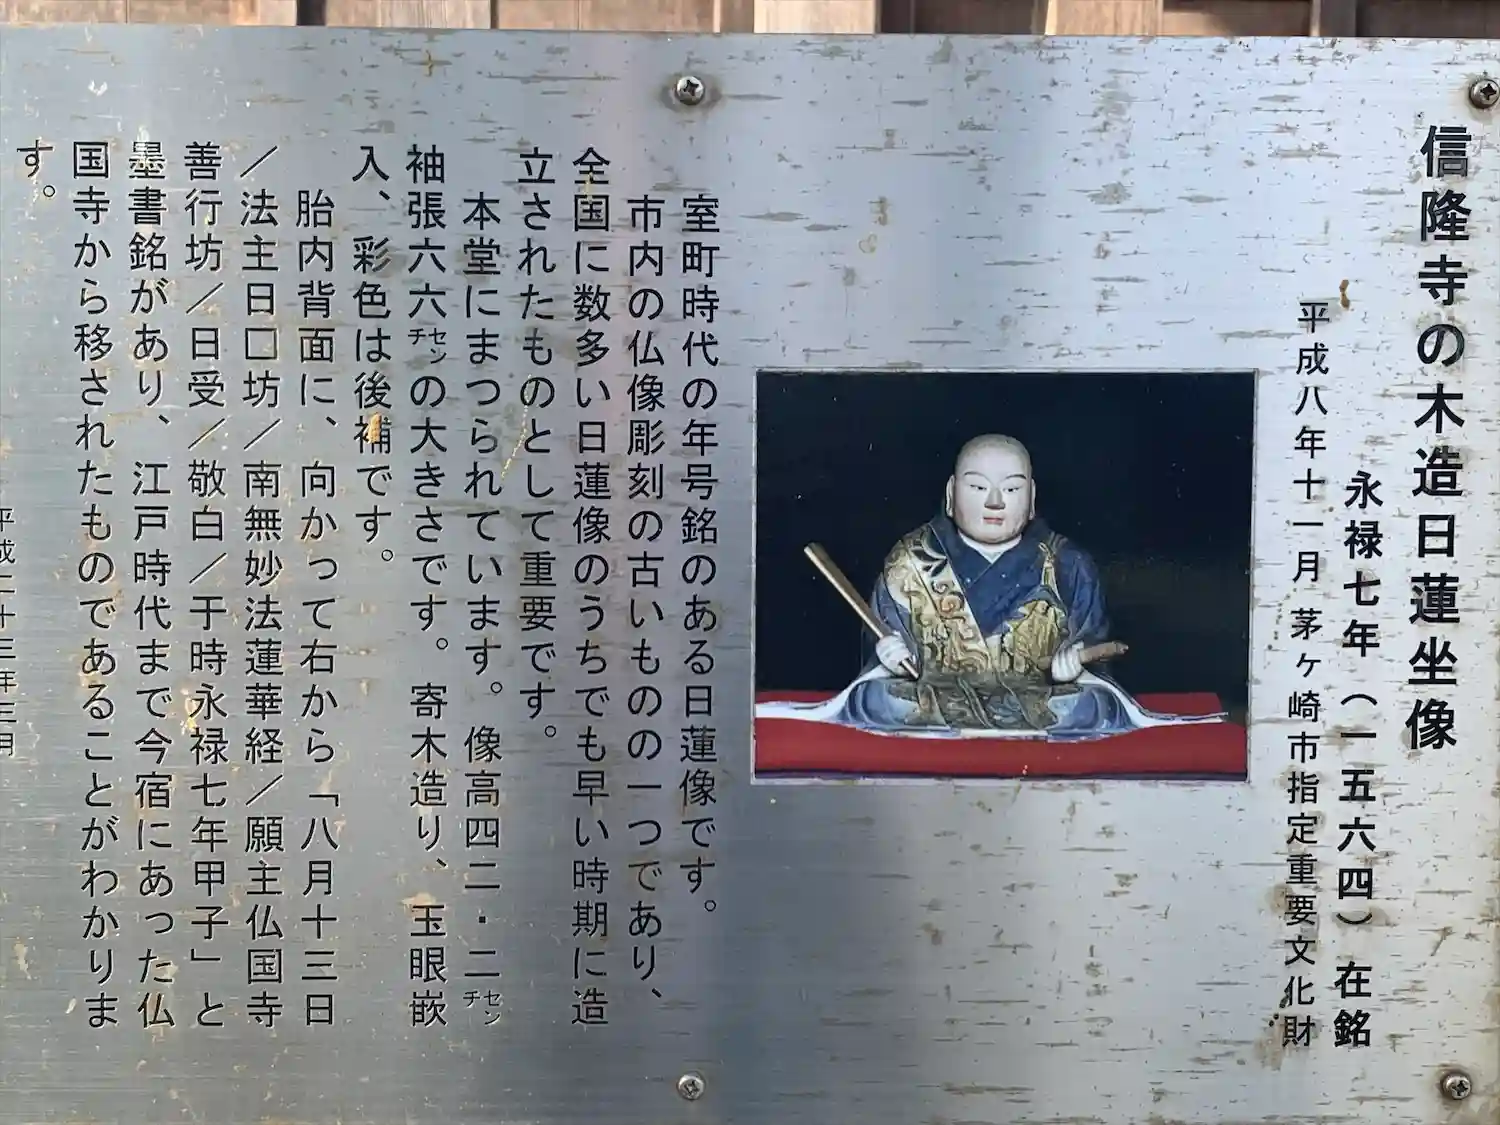 信隆寺の木造日蓮坐像
永禄七年（一五六四）在銘
平成八年十一月 茅ヶ崎市指定重要文化財
室町時代の年号銘のある日蓮像です。
市内の仏像彫刻の古いものの一つであり、
全国に数多い日蓮像のうちでも早い時期に造
立されたものとして重要です。
本堂にまつられています。像高四二・二センチ
袖張六六センチの大きさです。寄木造り、玉眼嵌
入、彩色は後補です。
胎内背面に、向かって右から「八月十三日
／法主日□坊／南無妙法蓮華経／願主仏国寺
善行坊／日受／敬白／于時永禄七年甲子」と
墨書銘があり、江戸時代まで今宿にあった仏
国寺から移されたものであることがわかりま
す。
平成二十三年三月